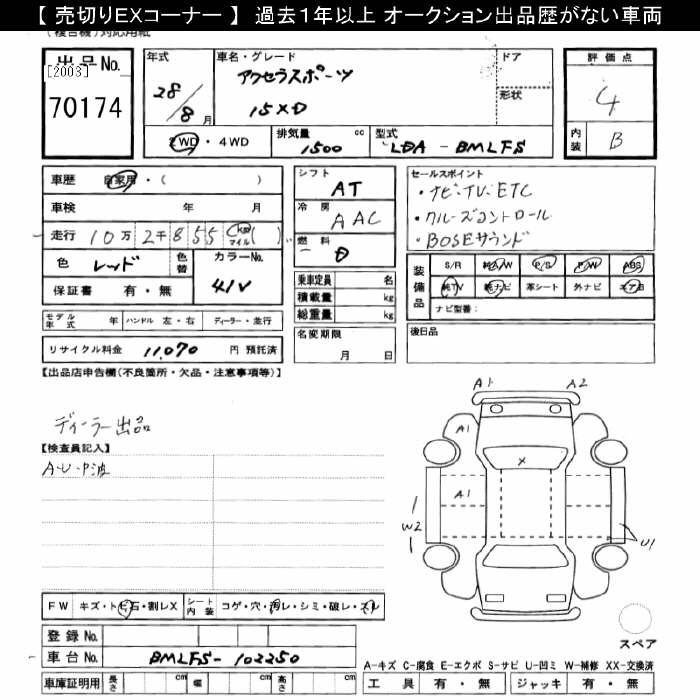 【 売切りEXコーナー 】 過去1年以上 オークション出品歴がない車両
(複合機)対応用紙
出品No.
[2003]
70174
年式
28/8月
車名・グレード
アクセラスポーツ
15XD
ドア
形状
2WD・4WD
排気量
1500 cc
型式
LDA - BMLFS
評価点
4
内装
B
車歴 自家用・( )
車検 年 月
走行 10万2千855 km マイル ( )
色 レッド
色替
カラーNo.
41V
保証書 有・無
モデル年式 年 ハンドル 左・右 ディーラー・並行
リサイクル料金 11,070 円 預託済
シフト
AT
冷房
AAC
燃料
D
乗車定員 名
積載量 kg
総重量 kg
名変期限
月 日
セールスポイント
・ナビ・TV・ETC
・クルーズコントロール
・BOSEサウンド
装備品
S/R 純A/W P/S P/W ABS
純TV 純ナビ 革シート 外ナビ エアB
ナビ型番:
後日品
【出品店申告欄(不良箇所・欠品・注意事項等)】
ディーラー出品
【検査員記入】
A・U・P波
A1 A2
A1
X
A1
W2
U1
FW キズ・トビ石・割レX シート内装 コゲ・穴・汚レ・シミ・破レ・スレ
登録 No.
車台 No. BMLFS-102250
車庫証明用 長さ cm 幅 cm 高さ cm
スペア
A-キズ C-腐食 E-エクボ S-サビ U-凹ミ W-補修 XX-交換済
工具 有・無 ジャッキ 有・無